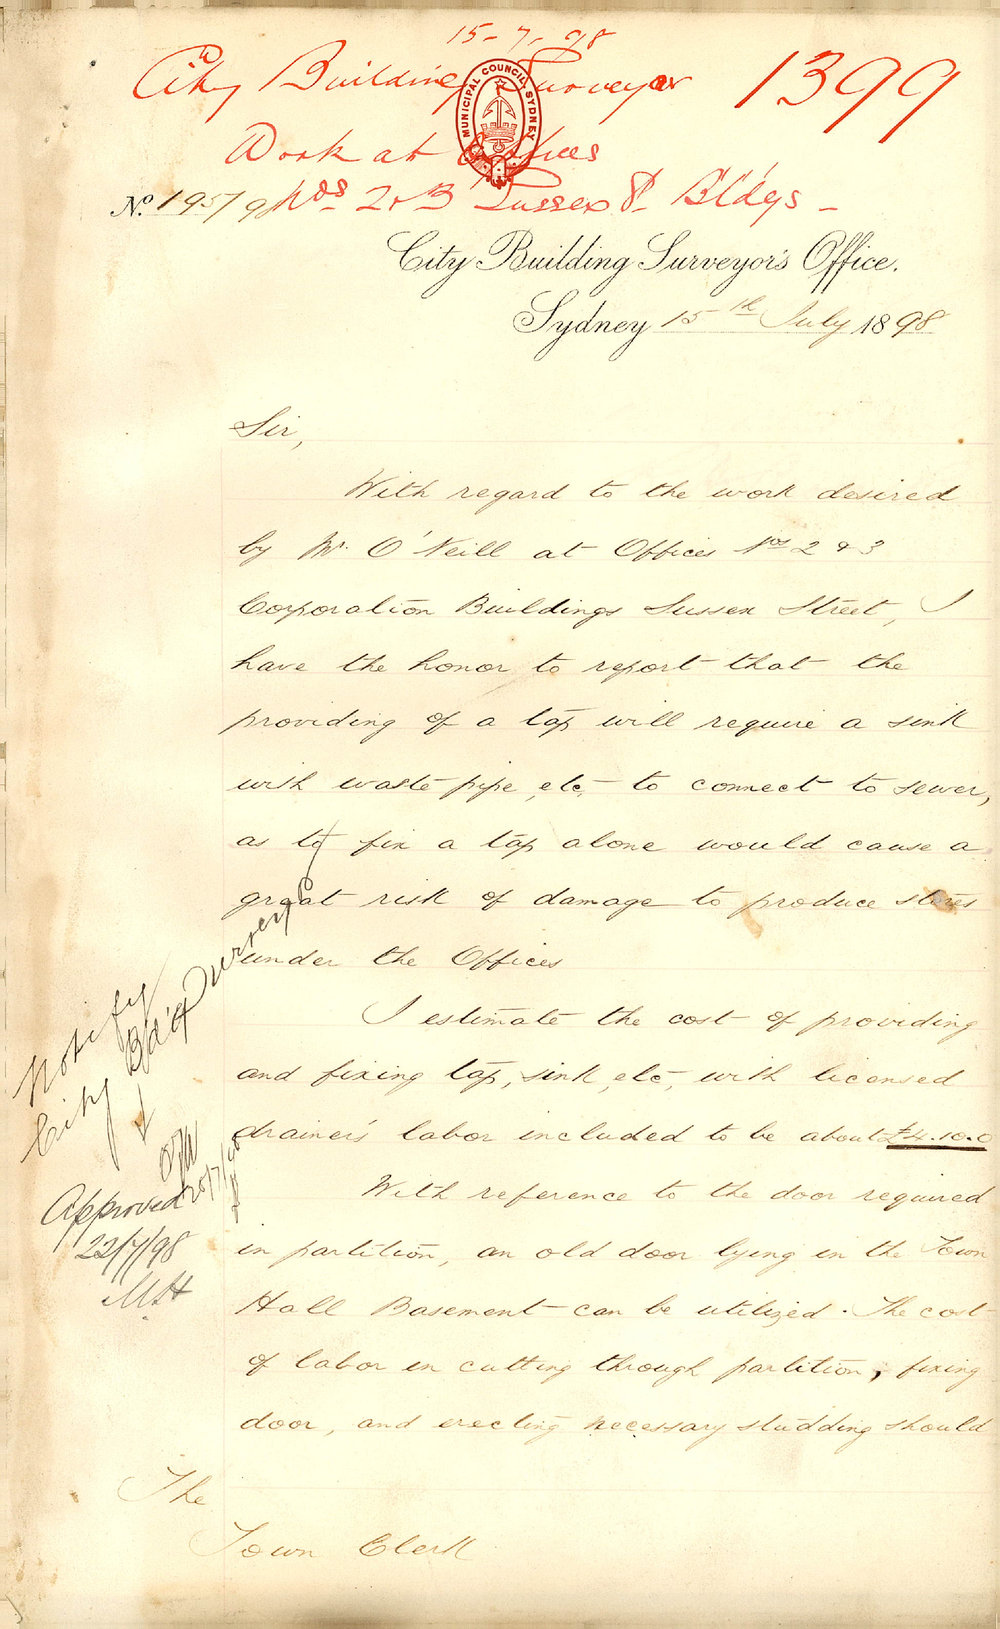 15-7-98
City Building Surveyor 1399
MUNICIPAL COUNCIL SYDNEY
Work at Offices
Nos 2 & 3 Sussex St Bldgs -
No. 195/98
City Building Surveyor's Office.
Sydney 15th July 1898
Sir,
With regard to the work desired
by Mr. O'Neill at Offices Nos 2 & 3
Corporation Buildings Sussex Street, I
have the honor to report that the
providing of a tap will require a sink
with waste pipe, etc. to connect to sewer,
as to fix a tap alone would cause a
great risk of damage to produce stores
under the Offices
I estimate the cost of providing
and fixing tap, sink, etc, with licensed
drainer's labor included to be about £4.10.0
With reference to the door required
in partition, an old door lying in the Town
Hall Basement can be utilized. The cost
of labor in cutting through partition, fixing
door, and erecting necessary studding should
The
Town Clerk
Notify
City Bd'g Surveyor
20/7/98
Approved
22/7/98